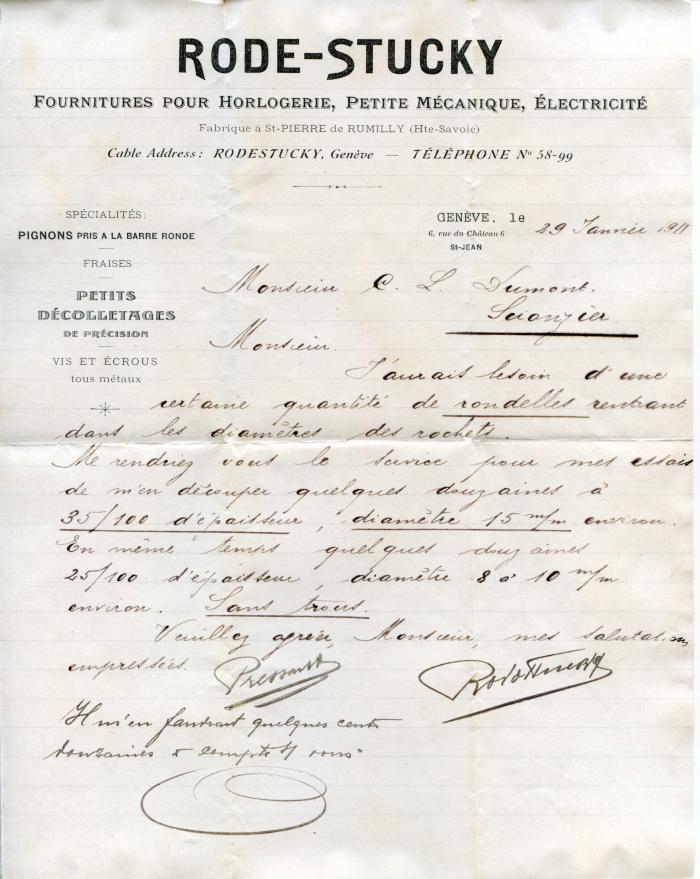 RODE-STUCKY
FOURNITURES POUR HORLOGERIE, PETITE MÉCANIQUE, ÉLECTRICITÉ
Fabrique à St-PIERRE de RUMILLY (Hte-Savoie)
Cable Address: RODESTUCKY, Genève — TÉLÉPHONE No 58-99
SPÉCIALITÉS:
PIGNONS PRIS A LA BARRE RONDE
FRAISES
PETITS
DÉCOLLETAGES
DE PRÉCISION
VIS ET ÉCROUS
tous métaux
GENÈVE, le 29 Janvier 1911
6, rue du Château 6
St-JEAN
Monsieur C. L. Dumont.
Scionzier
Monsieur.
J'aurais besoin d'une
certaine quantité de rondelles rentrant
dans les diamètres des rochets.
Me rendriez vous le service pour mes essais
de m'en découper quelques douzaines à
35/100 d'épaisseur, diamètre 15 m/m environ.
En même temps quelques douzaines
25/100 d'épaisseur, diamètre 8 à 10 m/m
environ. Sans trous.
Veuillez agréer, Monsieur, mes salutations
empressées. Pressant RodeStucky
Il m'en faudrait quelques cents
douzaines